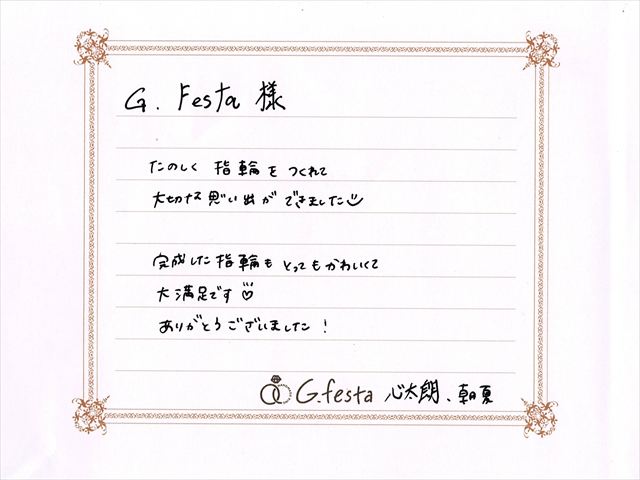 G. Festa 様
たのしく 指輪を つくれて
大切な思い出が できました
完成した指輪も とってもかわいくて
大満足です♡
ありがとうございました！
G.festa 心太朗、朝夏